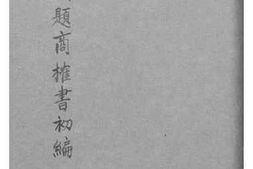 題商搉書初編